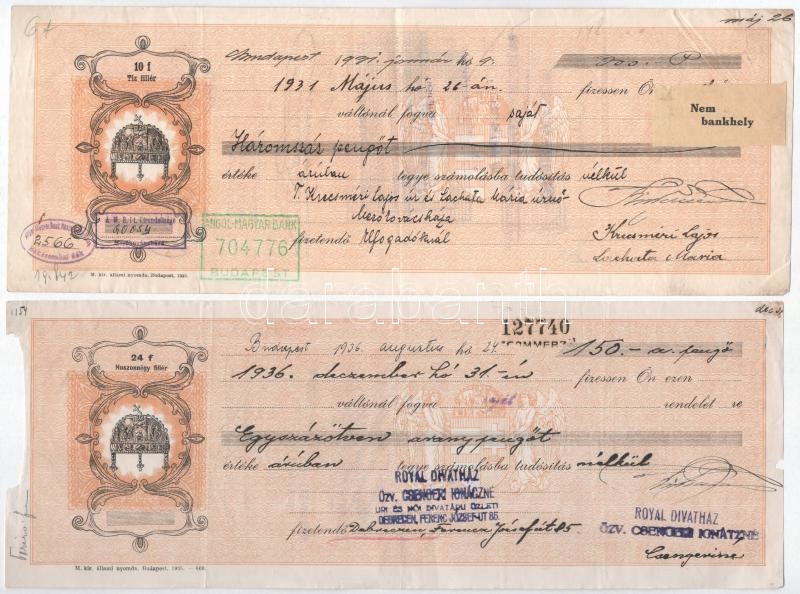 máj 26
10 f
Tíz fillér
Budapest 1931. január hó 9.
1931 Május hó 26-án fizessen Ön
váltónál fogva saját
Nem
bankhely
Háromszáz pengőt
értéke áruban tegye számolásba tudósítás nélkül
T. Krecsméri Lajos úr és Lachata Mária úrnő
Mezőkovácsháza
fizetendő Elfogadóknál
2566
60054
ANGOL-MAGYAR BANK
704776
BUDAPEST
Krecsméri Lajos
Lachata Mária
M. kir. állami nyomda. Budapest, 1930.
darabanth
1154
24 f
Huszonnégy fillér
127740
COMMERZ
Budapest 1936. augusztus hó 24. 150.- a. pengő
1936. deczember hó 31-én fizessen Ön ezen
váltónál fogva saját rendelet re
Egyszázötven aranypengőt
értéke áruban tegye számolásba tudósítás nélkül
ROYAL DIVATHÁZ
ÖZV. CSENGERI IGNÁCZNÉ
URI ÉS NŐI DIVATÁRU ÜZLETE
DEBRECEN, FERENC JÓZSEF-UT 85.
fizetendő Debreczen, Ferencz József út 85.
ROYAL DIVATHÁZ
ÖZV. CSENGERI IGNÁTZNÉ
Csengeriné
M. kir. állami nyomda. Budapest, 1935. — 600.